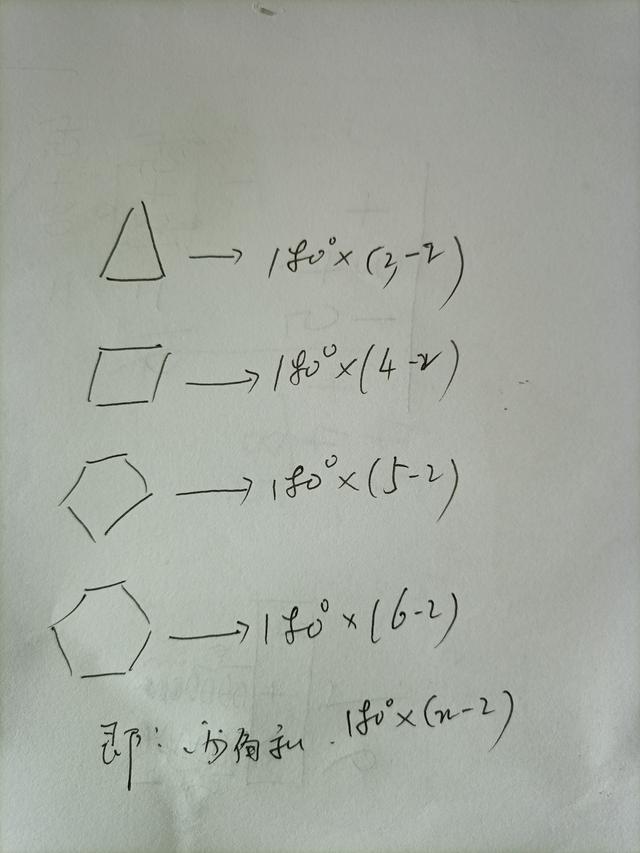 → 180°×(3-2)
→ 180°×(4-2)
→ 180°×(5-2)
→ 180°×(6-2)
即: 内角和 180°×(n-2)